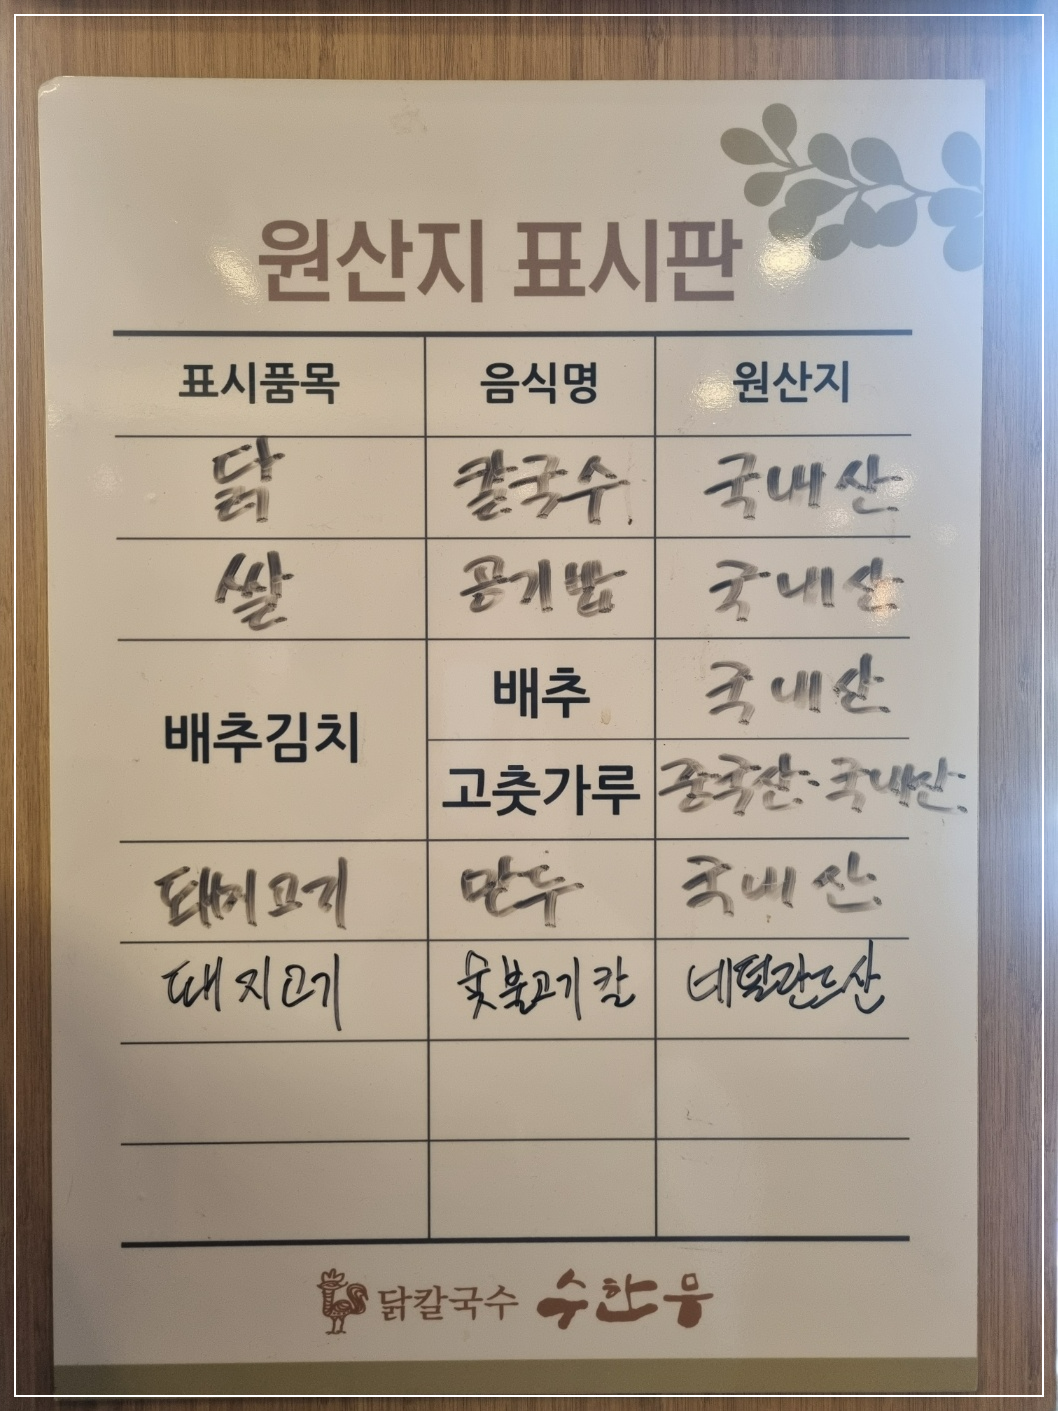 원산지 표시판
표시품목 음식명 원산지
닭 칼국수 국내산
쌀 공기밥 국내산
배추김치
배추 국내산
고춧가루 중국산·국내산
돼지고기 만두 국내산
돼지고기 숯불고기칼 네덜란드산
닭칼국수 수한웅